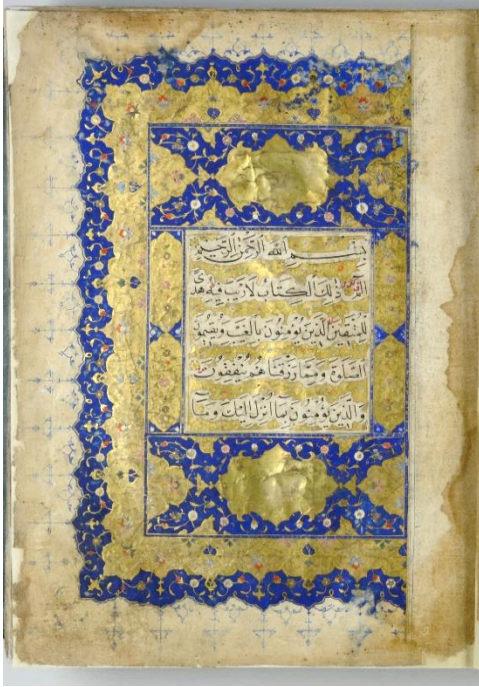 بِسْمِ اللَّهِ الرَّحْمَنِ الرَّحِيمِ
الٓمٓ ذَٰلِكَ الْكِتَابُ لَا رَيْبَ فِيهِ هُدًى
لِلْمُتَّقِينَ الَّذِينَ يُؤْمِنُونَ بِالْغَيْبِ وَيُقِيمُونَ
الصَّلٰوةَ وَمِمَّا رَزَقْنَاهُمْ يُنْفِقُونَ
وَالَّذِينَ يُؤْمِنُونَ بِمَا أُنْزِلَ إِلَيْكَ وَمَا